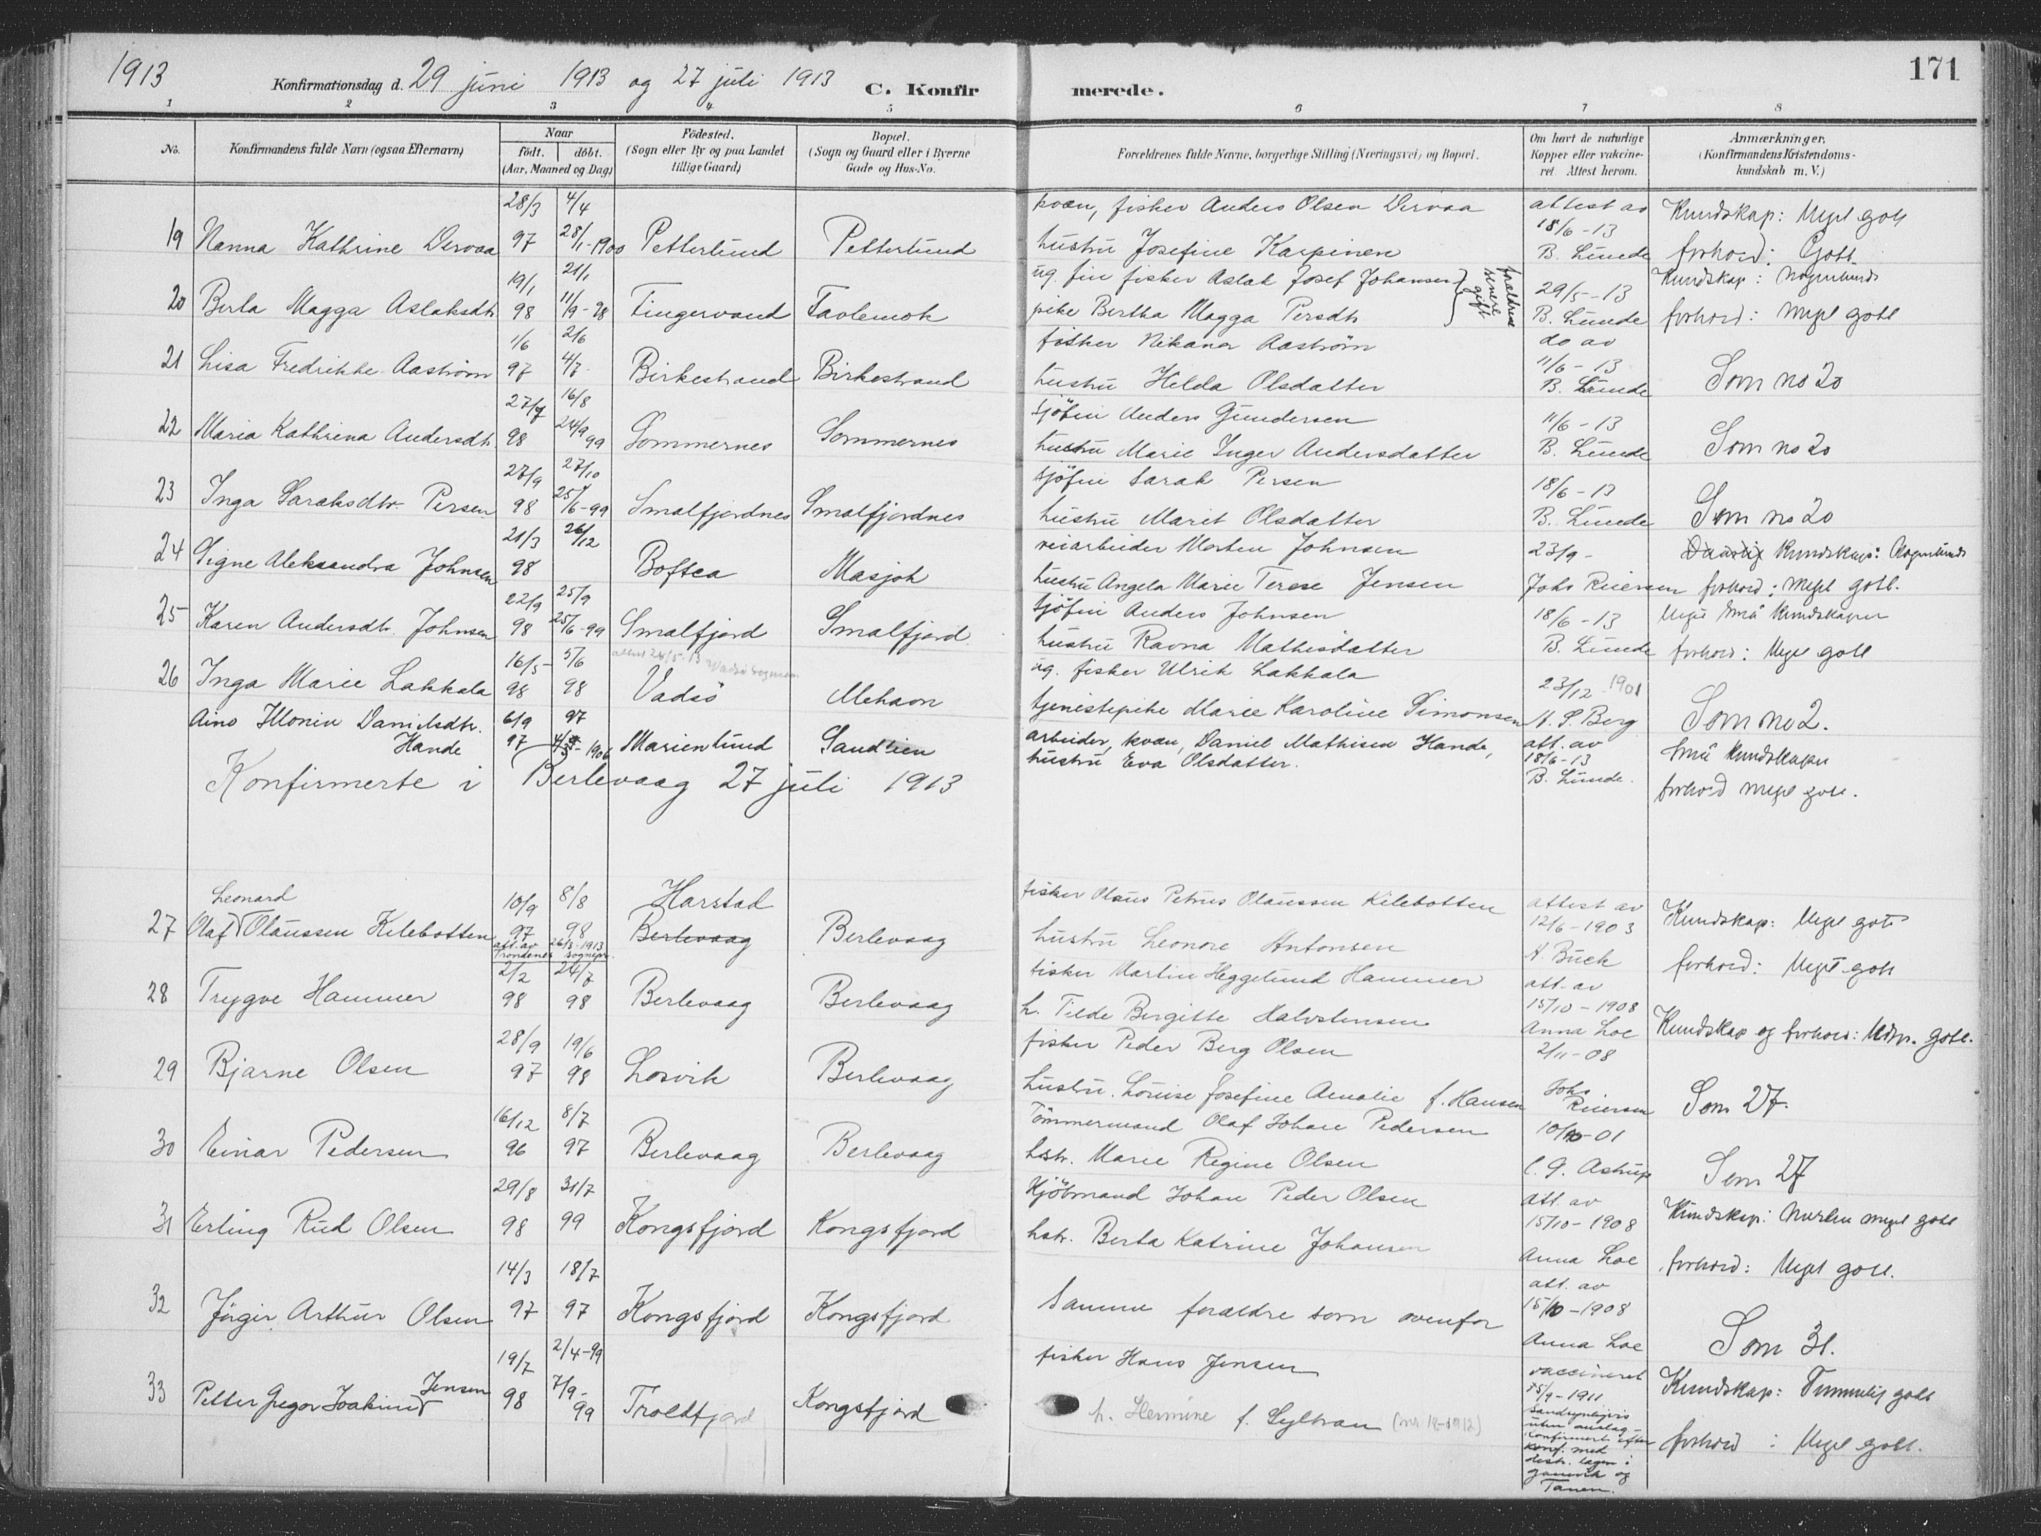 1913
Konfirmationsdag d. 29 juni 1913 og 27 juli 1913
C. Konfirmerede.
171
1 2 3 4 5 6 7 8
No.
Konfirmandens fulde Navn (ogsaa Efternavn)
Naar
födt. döbt.
(Aar, Maaned og Dag)
Födested.
(Sogn eller By og paa Landet
tillige Gaard)
Bopæl.
(Sogn og Gaard eller i Byerne
Gade og Hus-No.
Forældrenes fulde Navne, borgerlige Stilling (Næringsvei) og Bopæl.
Om havt de naturlige
Kopper eller vakcine-
ret. Attest herom.
Anmærkninger.
(Konfirmandens Kristendoms-
kundskab m. V.)
28/3 4/4 kvæn, fisker Anders Olsen Dervaa attest av Kundskap: Meget godt
19 Nanna Kathrine Dervaa 97 28/1-1900 Petterlund Petterlund hustru Josefine Karpinen 18/6-13 B. Lunde forhold: Godt.
19/1 21/1 ug. fin fisker Aslak Josef Johansen forældrene senere gift 29/5-13 Kundskap: Nogenlunde
20 Berta Magga Aslaksdtr. 98 11/9-98 Tingervand Favlemok pike Bertha Magga Persdtr B. Lunde forhold: Meget godt
1/6 2/6 fisker Nikanor Aaström do av
21 Lisa Fredrikke Aaström 97 4/7 Birkestrand Birkestrand hustru Hilda Olsdatter 11/6-13 B. Lunde Som no 20
27/7 16/8 sjöfin Anders Gundersen 11/6-13
22 Maria Kathrina Andersdtr. 98 24/9 99 Sommernes Sommernes hustru Marie Inger Andersdatter B. Lunde Som no 20
27/9 27/10 sjöfin Sarak Persen 18/6-13
23 Inga Saraksdtr. Persen 98 25/6-99 Smalfjordnes Smalfjordnes hustru Marit Olsdatter B. Lunde Som no 20
21/3 26/12 veiarbeider Morten Johnsen 23/9- Kundskap: Nogenlunde
24 Signe Aleksandra Johnsen 98 Boftca Masjok hustru Angela Marie Terese Jensen Johs Riersen forhold: Meget godt.
22/9 25/9 sjöfin Anders Johnsen 18/6-13 Meget små kundskaper
25 Karen Andersdtr. Johnsen 98 25/6-99 Smalfjord Smalfjord hustru Ravna Mathisdatter B. Lunde forhold: Meget godt
attest 24/5-13 Vadsö sogne
16/5- 5/6 ug. fisker Ulrik Lakkala 23/12 1901
26 Inga Marie Lakkala 98 98 Vadsö Mehavn tjenestepike Marie Karoline Simonsen N. S. Berg Som no 2.
Aino Monin Danielsdtr. 6/9 97 arbeider, kvæn, Daniel Mathisen Hande, att. av Små kundskaper
Hande 97 1906 Marienlund Sandlien hustru Eva Olsdatter. 18/6-13 B. Lunde. forhold meget godt.
Konfirmerte i Berlevaag 27 juli 1913
Leonard 10/9 8/8 Harstad fisker Olaus Petrus Olaussen Kilebotten attest av Kundskap: Meget godt
27 Olaf Olaussen Kilebotten 97 98 Berlevaag Berlevaag hustru Leonore Antonsen 12/6-1903 A Buck forhold: Meget godt
att. av Trondenes sognepr. 26/8-1913
2/2 24/7 fisker Martin Heggelund Hammer att. av
28 Trygve Hammer 98 98 Berlevaag Berlevaag h. Tilde Bergitte Halvstensen 15/10-1908 Anna Loe Kundskap og forhold: Udm. godt.
28/9 19/6 fisker Peder Berg Olsen 2/11-08
29 Bjarne Olsen 97 98 Losvik Berlevaag hustru. Louise Josefine Amalie f. Hansen Johs Riersen Som 27.
16/12 8/7 Tömmermand Olaf Johan Pedersen 10/10-01
30 Einar Pedersen 96 97 Berlevaag Berlevaag hstr. Marie Regine Olsen C. G. Astrup Som 27
29/8 31/7 Kjöbmand Johan Peder Olsen att av Kundskap: Næsten meget godt
31 Erling Rud Olsen 98 99 Kongsfjord Kongsfjord hstr. Berta Katrine Johansen 15/10-1908 Anna Loe forhold: Meget godt.
14/3 18/7 att. av
32 Jörgir Arthur Olsen 97 97 Kongsfjord Kongsfjord Samme forældre som ovenfor 15/10-1908 Anna Loe Som 31.
19/7 2/4-99 fisker Hans Jensen vaccineret 15/9-1911 Kundskap: Temmelig godt
33 Petter Gregor Joakim Jensen 98 7/9-99 Troldfjord Kongsfjord h. Hermine f. Syltvan sandsynligvis uten anslag - konfirmert efter konf. med distr. lægen i Gamvik og Tanen. forhold: Meget godt.